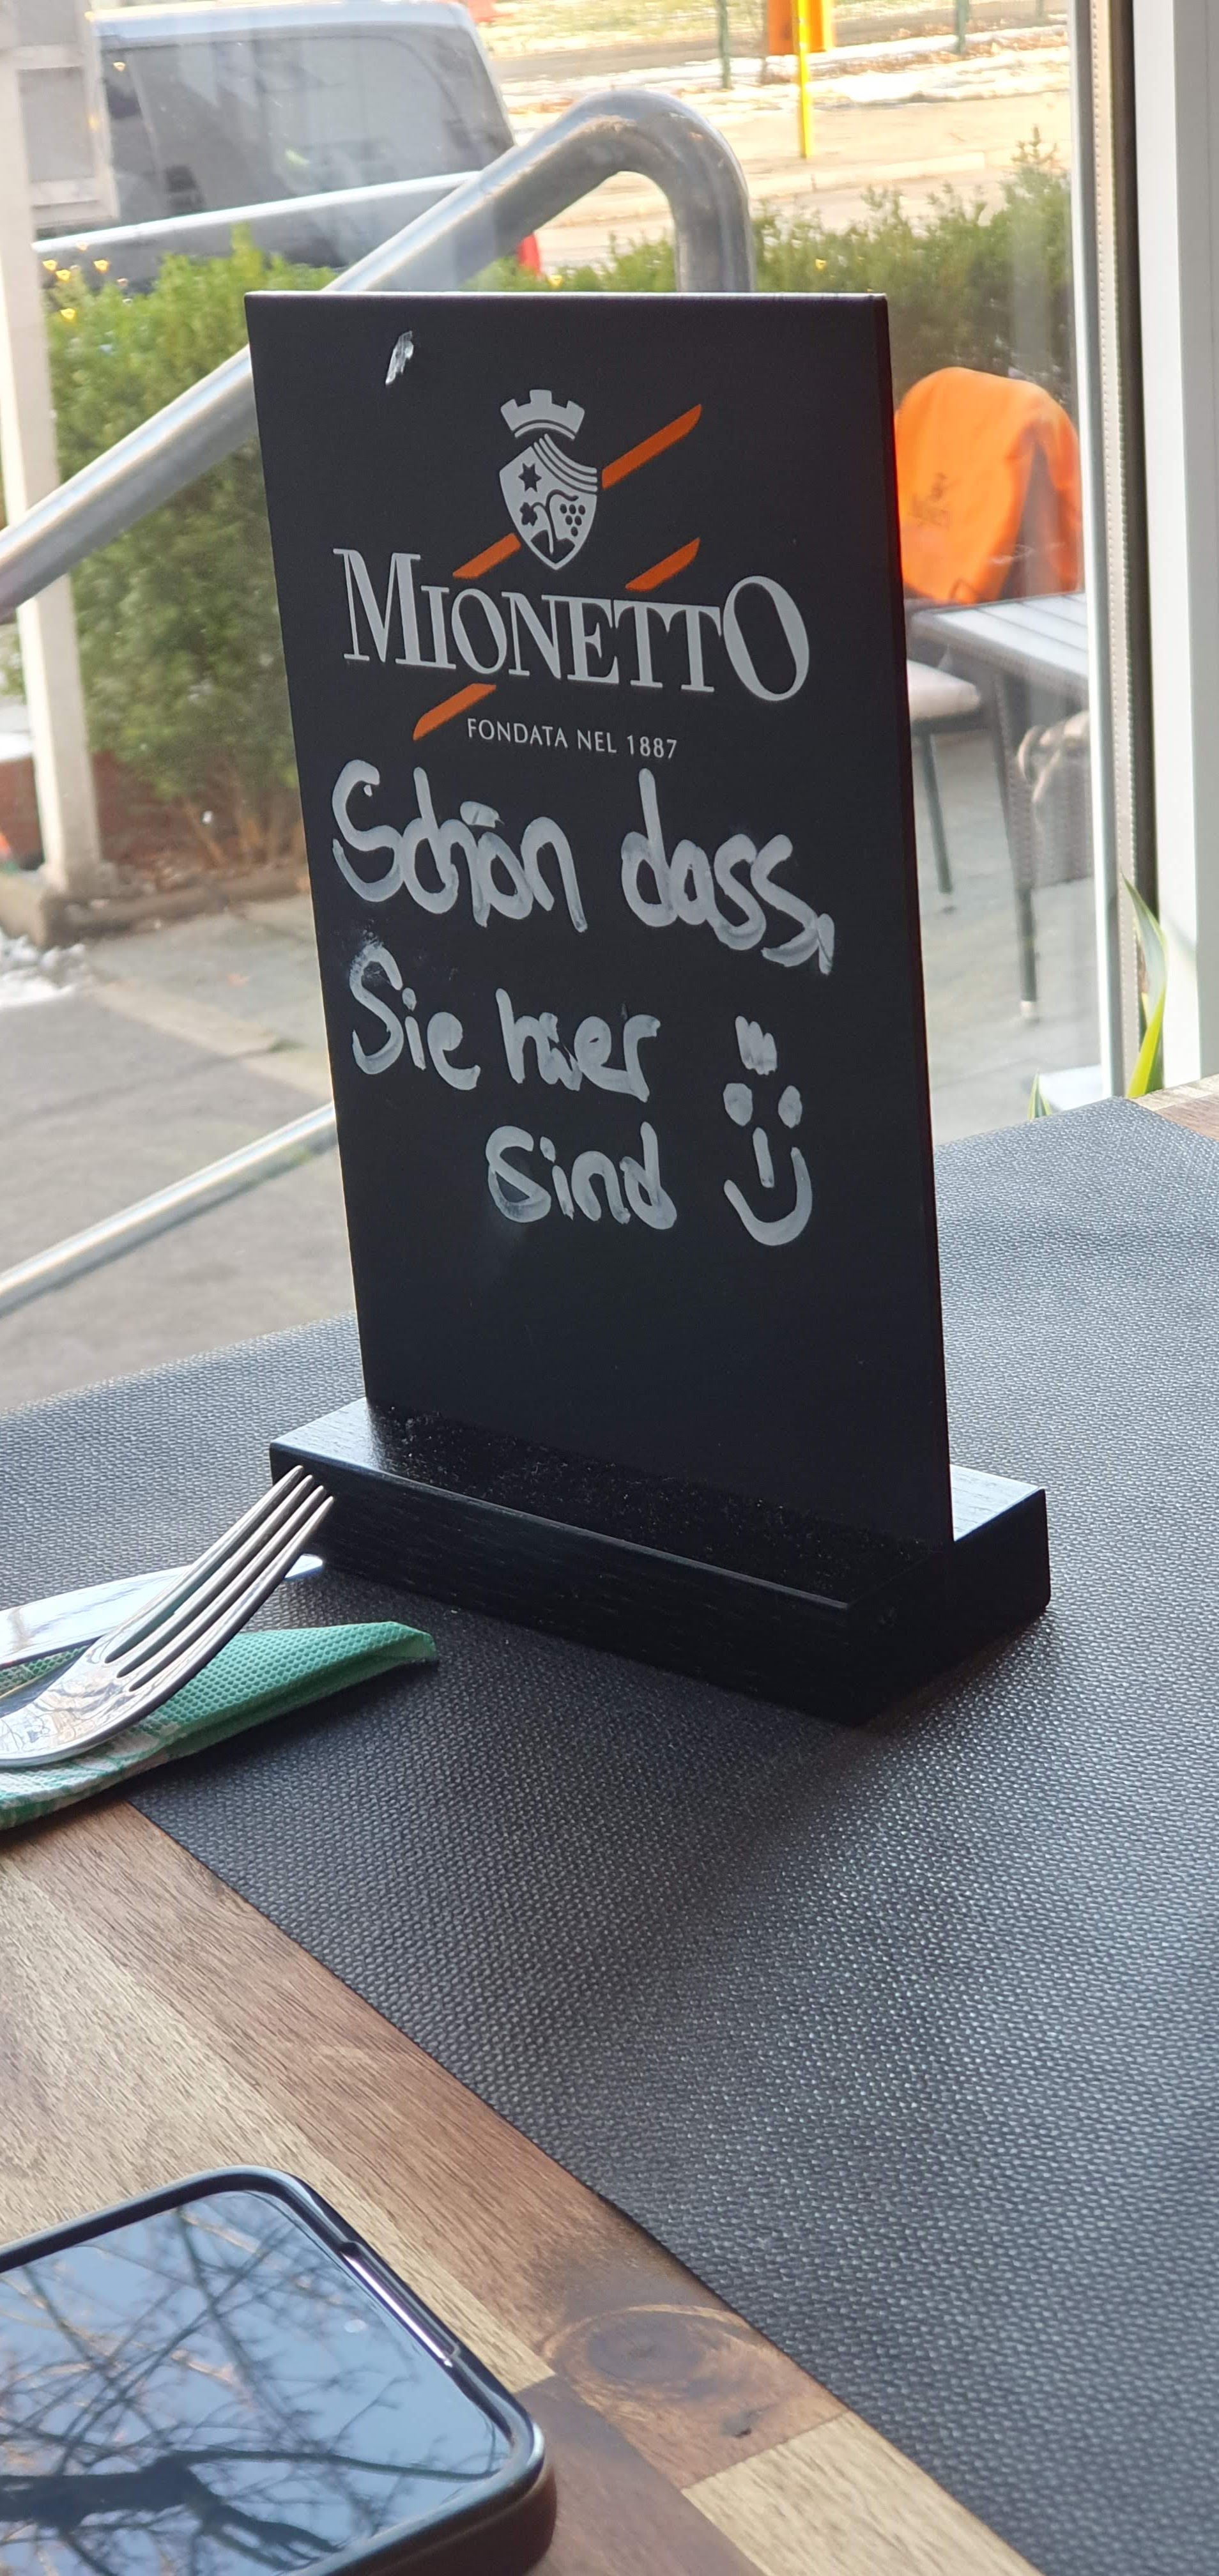 MIONETTO
FONDATA NEL 1887
Schön dass,
Sie hier
sind